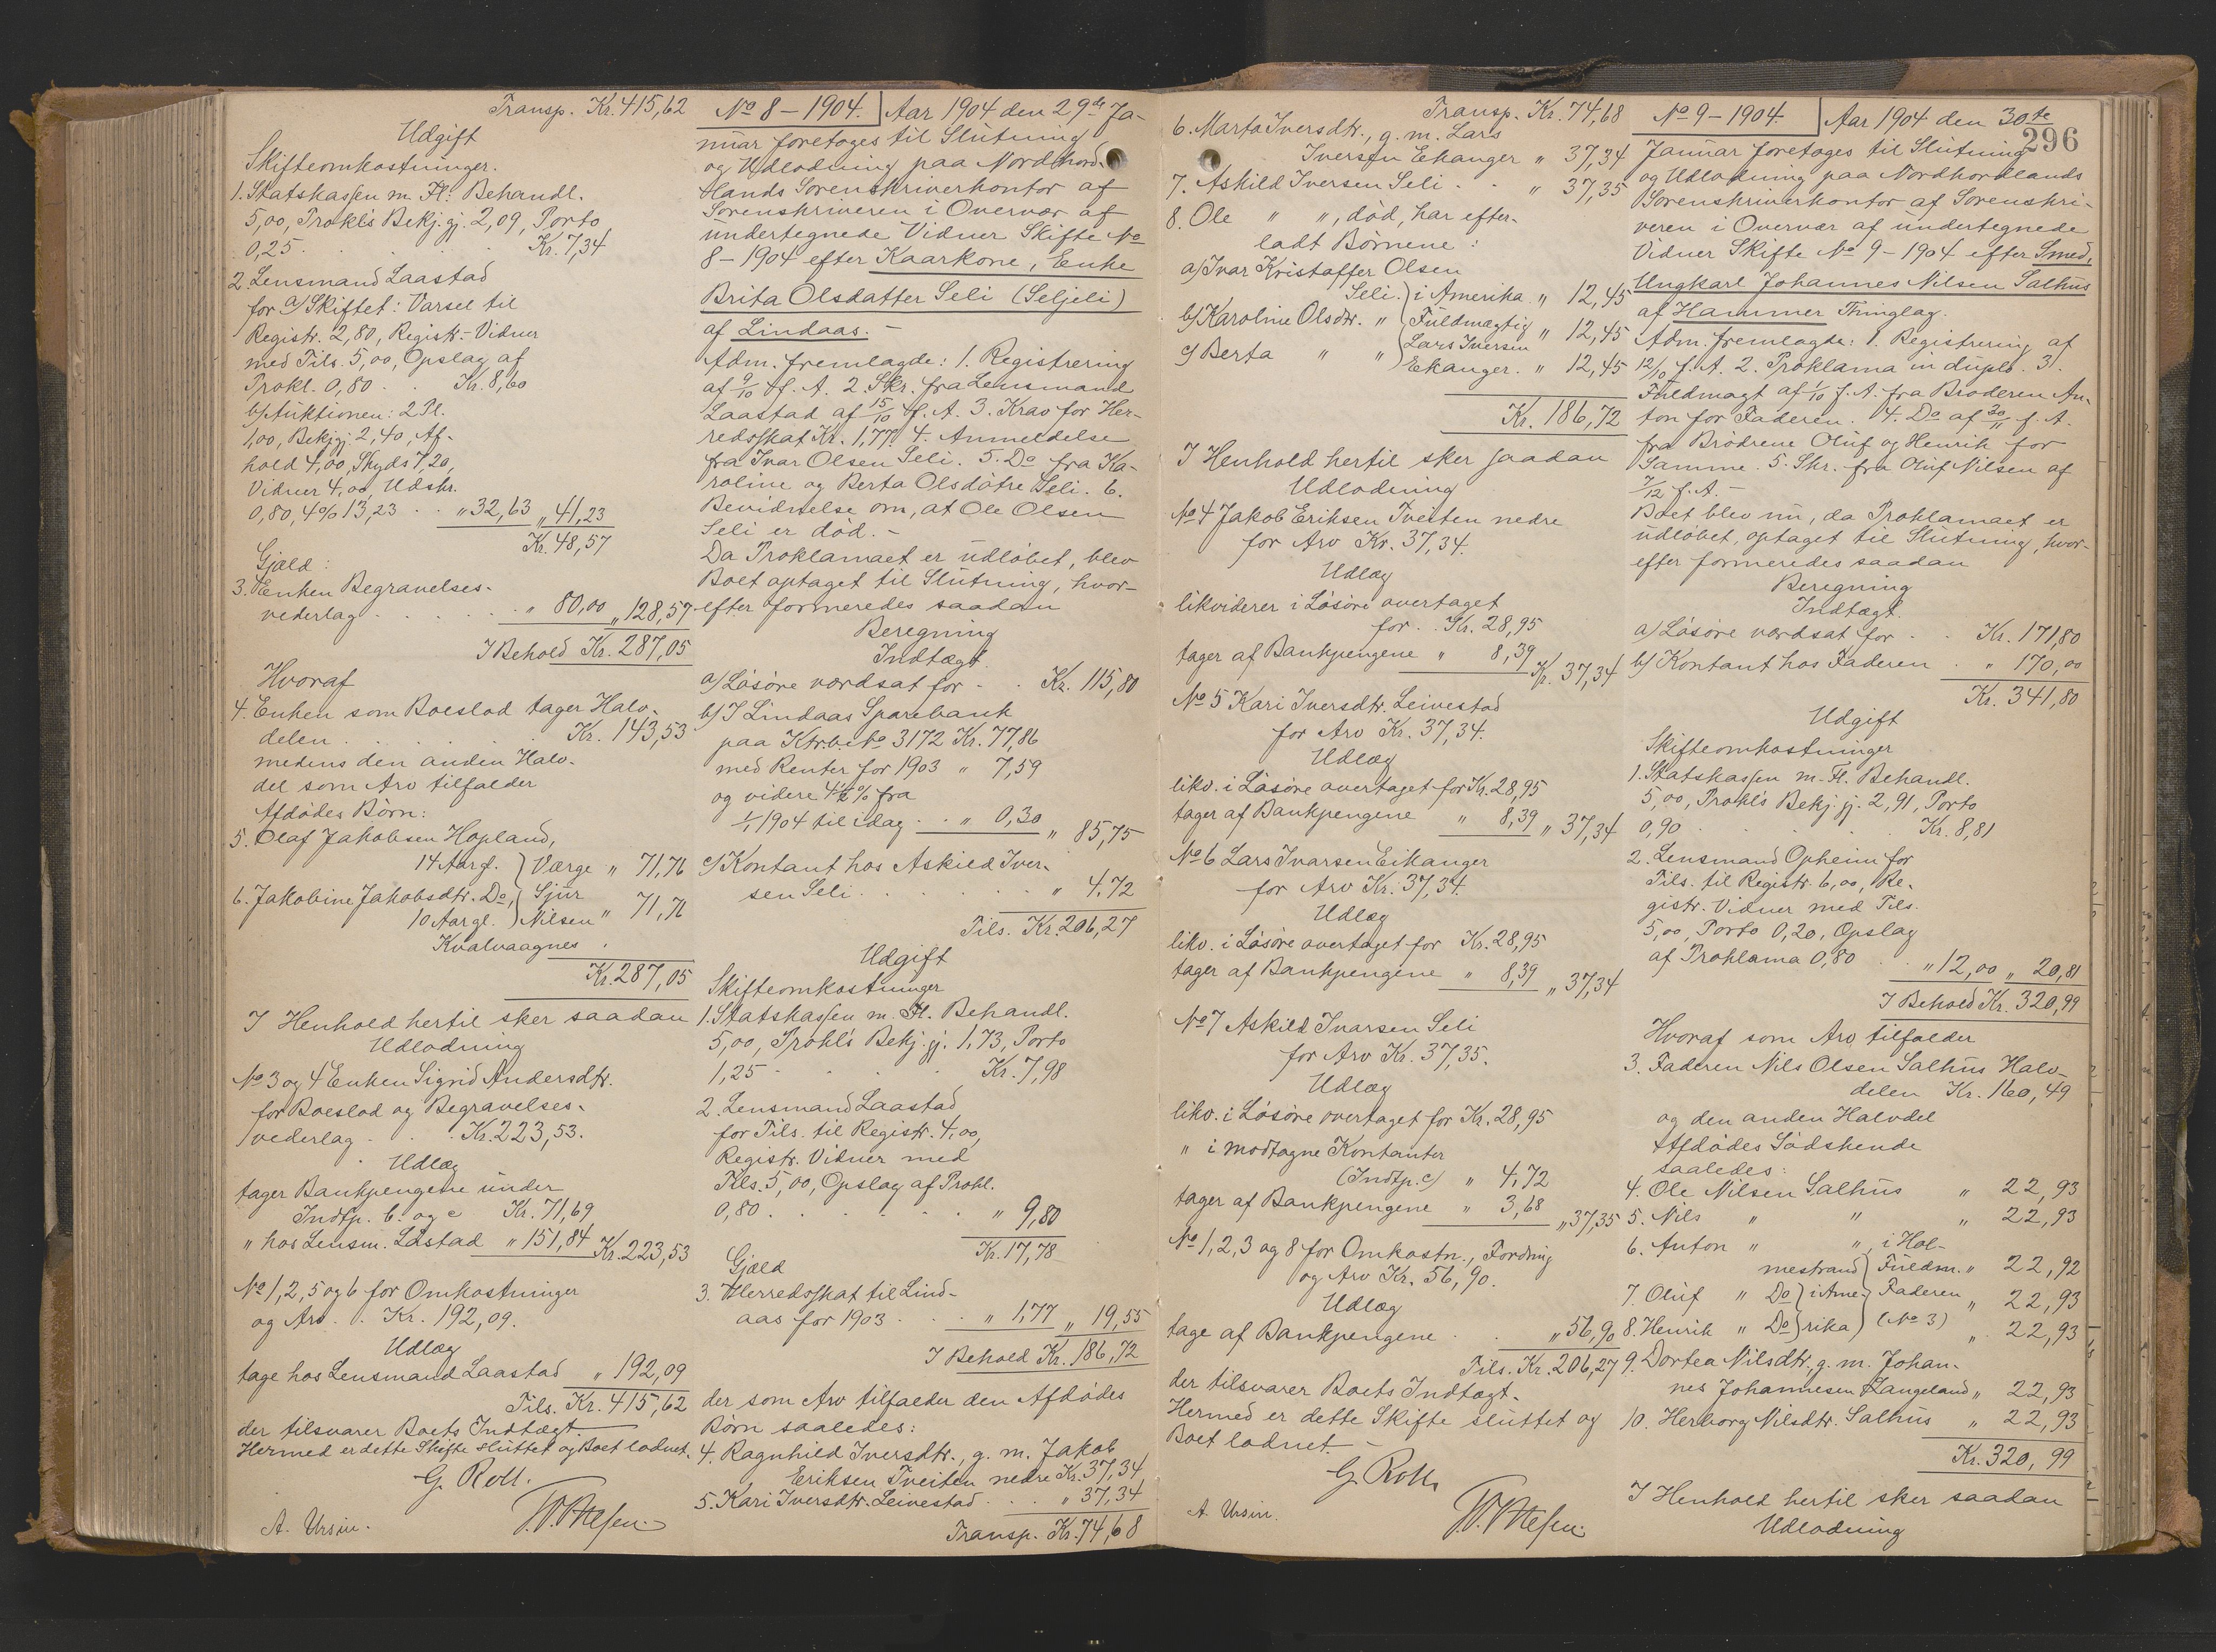 Transp. Kr. 415,62
Udgift
Skifteomkostninger.
1. Statskassen m. Fl: Behandl.
5,00, Prokl's Bekj.gj. 2,09, Porto
0,25 . . . Kr. 7,34
2. Lensmand Laastad
for a) Skiftet: Varsel til
Registr. 2,80, Registr.-Vidner
med Tils. 5,00, Opslag af
Prokl. 0,80 . . Kr. 8,60
b) Auktionen: 2 Pl.
1,00, Bekjgj. 2,40, Af-
hold 4,00, Skyds 7,20,
Vidner 4,00, Udskr.
0,80, 4% 13,23 . . " 32,63 " 41,23
Kr. 48,57
Gjæld:
3. Enken Begravelses-
vederlag . . . . " 80,00 " 128,57
I Behold Kr. 287,05
Hvoraf
4. Enken som Boeslod tager Halv-
delen . . . . Kr. 143,53
medens den anden Halv-
del som Arv tilfalder
Afdødes Børn:
5. Olaf Jakobsen Hopland,
14 Aar g. } Værge " 71,76
6. Jakobine Jakobsdtr. Do, } Sjur
10 Aar gl. } Nilsen " 71,76
Kvalvaagnes .
Kr. 287,05
I Henhold hertil sker saadan
Udlodning
No 3 og 4 Enken Sigrid Andersdtr.
for Boeslod og Begravelses-
vederlag . . . Kr. 223,53.
Udlæg
tager Bankpengene under
Indtp. b. og c Kr. 71,69
" hos Lensm. Lastad " 151,84 Kr. 223,53
No 1, 2, 5 og 6 for Omkostninger
og Arv . . Kr. 192,09.
Udlæg
tage hos Lensmand Laastad " 192,09
Tils. Kr. 415,62
der tilsvarer Boets Indtægt.
Hermed er dette Skifte sluttet og Boet lodnet.
G. Roll.
A. Ursin.
No 8 – 1904. Aar 1904 den 29de Ja-
nuar foretoges til Slutning
og Udlodning paa Nordhord-
lands Sorenskriverkontor af
Sorenskriveren i Overvær af
undertegnede Vidner Skifte No
8 – 1904 efter Kaarkone, Enke
Brita Olsdatter Seli (Seljeli)
af Lindaas. –
Adm. fremlagde: 1. Registrering
af 9/10 f. A. 2. Skr. fra Lensmand
Laastad af 15/10 f. A. 3. Krav for Her-
redsskat Kr. 1,77. 4. Anmeldelse
fra Ivar Olsen Seli. 5. Do fra Ka-
roline og Berta Olsdøtre Seli. 6.
Bevidnelse om, at Ole Olsen
Seli er død. –
Da Proklamaet er udløbet, blev
Boet optaget til Slutning, hvor-
efter formeredes saadan
Beregning
Indtægt.
a) Løsøre værdsat for . . Kr. 115,80
b) I Lindaas Sparebank
paa Ktrb. No 3172 Kr. 77,86
med Renter for 1903 " 7,59
og videre 4½% fra
1/1 1904 til idag . . " 0,30 " 85,75
c) Kontant hos Askild Iver-
sen Seli . . . . . " 4,72
Tils. Kr. 206,27
Udgift
Skifteomkostninger
1. Statskassen m. Fl. Behandl.
5,00, Prokl's Bekj.gj. 1,73, Porto
1,25 . . . . Kr. 7,98
2. Lensmand Laastad
for Tils. til Registr. 4,00,
Registr. Vidner med
Tils. 5,00, Opslag af Prokl.
0,80 . . . . . " 9,80
Kr. 17,78
Gjæld
3. Herredsskat til Lind-
aas for 1903 . . . " 1,77 " 19,55
I Behold Kr. 186,72
der som Arv tilfalder den Afdødes
Børn saaledes:
4. Ragnhild Iversdtr., g. m. Jakob
Eriksen Tveiten nedre Kr. 37,34
5. Kari Iversdtr. Leivestad . . . " 37,34
Transp. Kr. 74,68
Transp. Kr. 74,68
6. Marta Iversdtr., g. m. Lars
Iversen Ekanger " 37,34
7. Askild Iversen Seli . . " 37,35
8. Ole " ", død, har efter-
ladt Børnene:
a) Ivar Kristoffer Olsen
Seli. } i Amerika. " 12,45
b) Karoline Olsdtr. " } Fuldmægtig " 12,45
Lars Iversen
c) Berta " " } Ekanger. " 12,45
Kr. 186,72
I Henhold hertil sker saadan
Udlodning
No 4 Jakob Eriksen Tveiten nedre
for Arv Kr. 37,34.
Udlæg
likviderer i Løsøre overtaget
for . . Kr. 28,95
tager af Bankpengene " 8,39 Kr. 37,34
No 5 Kari Iversdtr. Leivestad
for Arv Kr. 37,34.
Udlæg
likv. i Løsøre overtaget for Kr. 28,95
tager af Bankpengene " 8,39 " 37,34
No 6 Lars Ivarsen Eikanger
for Arv Kr. 37,34.
Udlæg
likv. i Løsøre overtaget for Kr. 28,95
tager af Bankpengene " 8,39 " 37,34
No 7 Askild Ivarsen Seli
for Arv Kr. 37,35.
Udlæg
likv. i Løsøre overtaget for Kr. 28,95
" i modtagne Kontanter
(Indtp. c) " 4,72
tager af Bankpengene " 3,68 " 37,35
No 1, 2, 3 og 8 for Omkostn., Fordring
og Arv Kr. 56,90.
Udlæg
tage af Bankpengene . . " 56,90
Tils. Kr. 206,27
der tilsvarer Boets Indtægt.
Hermed er dette Skifte sluttet og
Boet lodnet. –
G. Roll
A. Ursin.
No 9 – 1904. Aar 1904 den 30te
296
Januar foretoges til Slutning
og Udlodning paa Nordhordlands
Sorenskriverkontor af Sorenskri-
veren i Overvær af undertegnede
Vidner Skifte No 9 – 1904 efter Smed,
Ungkarl Johannes Nilsen Salhus
af Hammer Thinglag.
Adm. fremlagde: 1. Registrering af
12/10 f. A. 2. Proklama in duplo. 3.
Fuldmagt af 1/10 f. A. fra Broderen An-
ton for Faderen. 4. Do af 30/11 f. A.
fra Brødrene Oluf og Henrik for
Samme. 5. Skr. fra Oluf Nilsen af
7/12 f. A. –
Boet blev nu, da Proklamaet er
udløbet, optaget til Slutning, hvor-
efter formeredes saadan
Beregning
Indtægt.
a) Løsøre værdsat for . . Kr. 171,80
b) Kontant hos Faderen . " 170,00
Kr. 341,80
Udgift
Skifteomkostninger
1. Statskassen m. Fl. Behandl.
5,00, Prokl's Bekj.gj. 2,91, Porto
0,90 . . . . Kr. 8,81
2. Lensmand Opheim for
Tils. til Registr. 6,00, Re-
gistr. Vidner med Tils.
5,00, Porto 0,20, Opslag
af Proklama 0,80 . . " 12,00 " 20,81
I Behold Kr. 320,99
Hvoraf som Arv tilfalder
3. Faderen Nils Olsen Salhus Halv-
delen Kr. 160,49
og den anden Halvdel
Afdødes Sødskende
saaledes:
4. Ole Nilsen Salhus " 22,93
5. Nils " " " 22,93
6. Anton " ", i Hol-
mestrand } Fuldm. " 22,92
7. Oluf " Do } i Ame- } Faderen " 22,93
8. Henrik " Do } rika } (No 3) " 22,93
9. Dortea Nilsdtr., g. m. Johan-
nes Johannesen Langeland " 22,93
10. Herborg Nilsdtr. Salhus " 22,93
Kr. 320,99
I Henhold hertil sker saadan
Udlodning